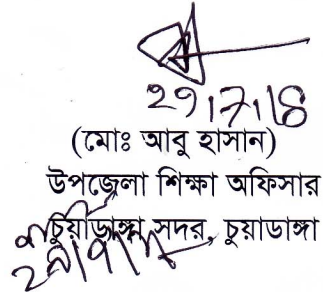 29.7.18
(মোঃ আবু হাসান)
উপজেলা শিক্ষা অফিসার
চুয়াডাঙ্গা সদর, চুয়াডাঙ্গা